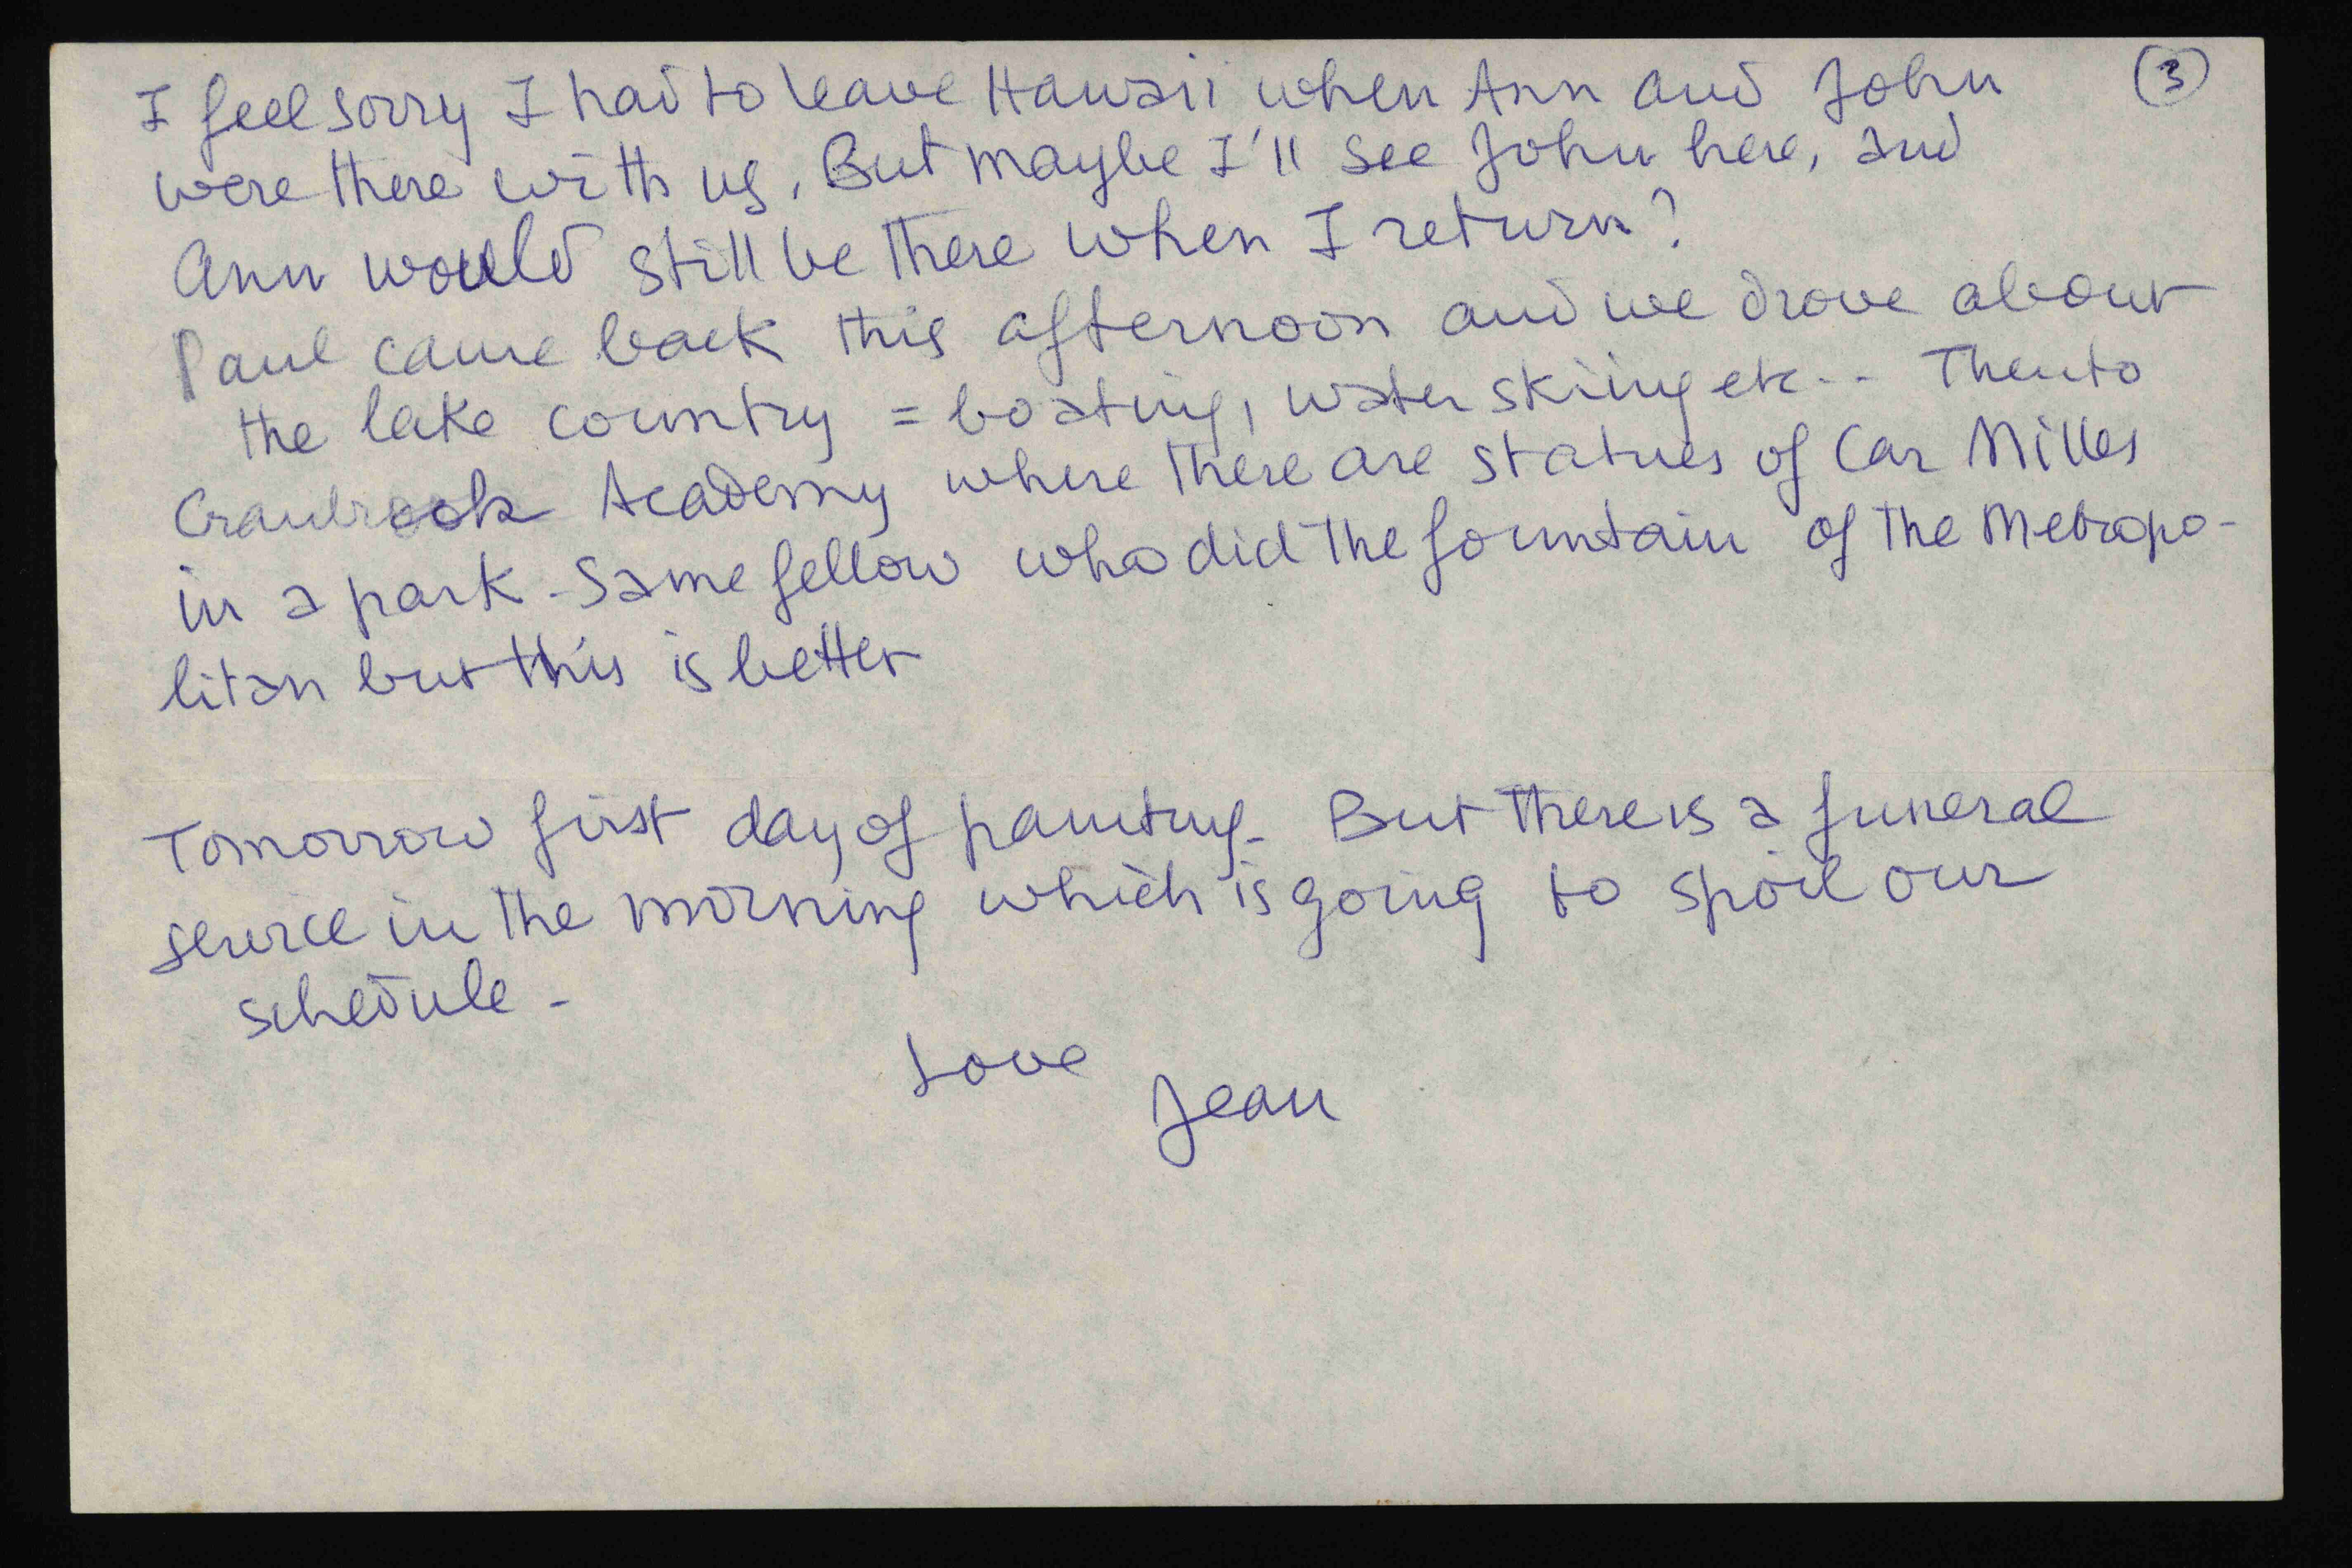 I feel sorry I had to leave Hawaii when Ann and John (3)
were there with us. But maybe I'll see John here, and
Ann would still be there when I return?
Paul came back this afternoon and we drove about
the lake country = boating, water skiing etc-- Then to
Cranbrook Academy where there are statues of Car Milles
in a park - Same fellow who did the fountain of the Metropo-
litan but this is better
Tomorrow first day of painting - But there is a funeral
service in the morning which is going to spoil our
schedule -
Love
Jean